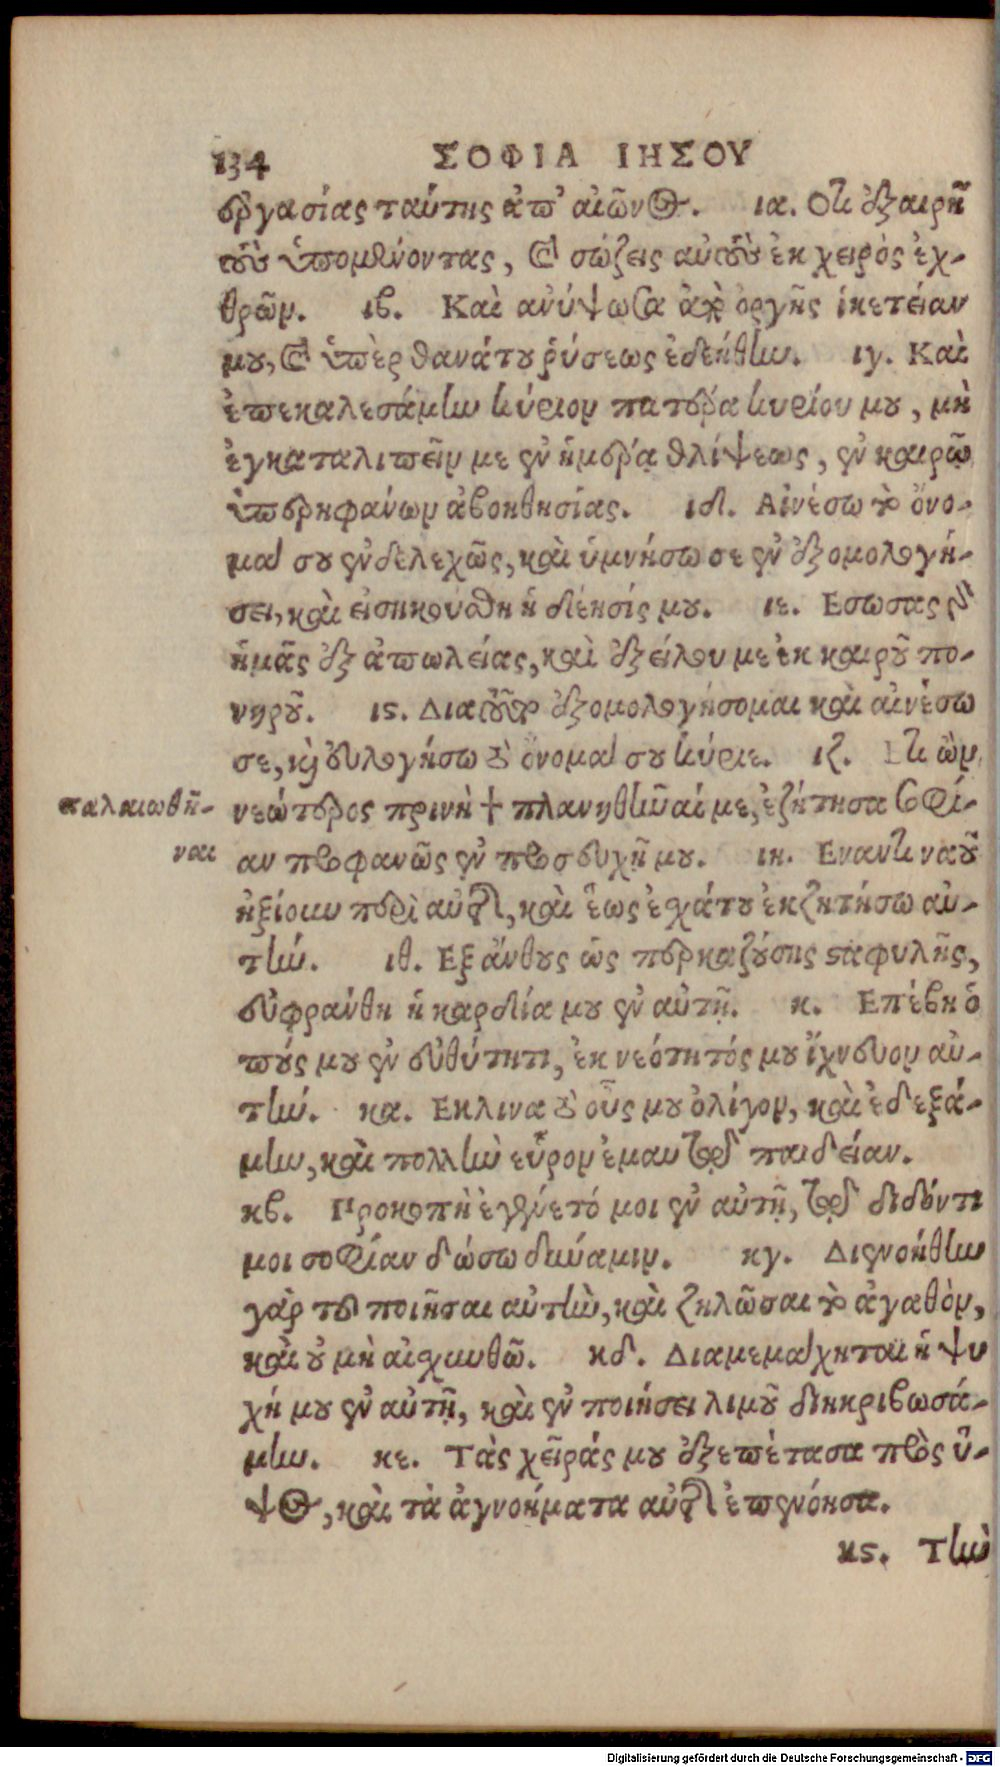 134 ΣΟΦΙΑ ΙΗΣΟΥ
εργασίας ταύτης ἀπ' αἰῶνος. ια. Οτι ἐξαιρῆ
τοὺς ὑπομένοντας, καὶ σώζεις αὐτοὺς ἐκ χειρὸς ἐχ-
θρῶν. ιβ. Καὶ ανύψωσα ἀπὸ ὀργῆς ἱκετείαν
μου, καὶ ὑπὲρ θανάτου ῥύσεως ἐδεήθην. ιγ. Καὶ
ἐπεκαλεσάμην κύριον πατέρα κυρίου μου, μὴ
ἐγκαταλιπεῖν με ἐν ἡμέρᾳ θλίψεως, ἐν καιρῷ
ὑπερηφάνων ἀβοηθησίας. ιδ. Αἰνέσω τὸ ὄνο-
μα σου ἐνδελεχῶς, καὶ ὑμνήσω σε ἐν ἐξομολογή-
σει, καὶ εἰσηκούσθη ἡ δέησίς μου. ιε. Εσωσας γὰρ
ἡμᾶς ἐξ ἀπωλείας, καὶ ἐξείλου με ἐκ καιροῦ πο-
νηροῦ. ις. Διατοῦτο ἐξομολογήσομαι καὶ αἰνέσω
σε, καὶ εὐλογήσω τὸ ὄνομα σου κύριε. ιζ. Ετι ὢν
νεώτερος πρινὴ + πλανηθῆναί με, ἐζήτησα σοφί-
παλαιωθῆ-
ναι
αν προφανῶς ἐν προσευχῇ μου. ιη. Εναντι ναοῦ
ἠξίουν περὶ αὐτῆς, καὶ ἕως ἐσχάτου ἐκζητήσω αὐ-
τήν. ιθ. Εξ ἄνθους ὡς περκαζούσης σταφυλῆς,
εὐφράνθη ἡ καρδία μου ἐν αὐτῇ. κ. Επέβη ὁ
πούς μου ἐν εὐθύτητι, ἐκ νεότητός μου ἴχνευον αὐ-
τήν. κα. Εκλινα τὸ οὖς μου ὀλίγον, καὶ ἐδεξά-
μην, καὶ πολλὴν εὗρον ἐμαυτῷ παιδείαν.
κβ. Προκοπὴ ἐγένετό μοι ἐν αὐτῇ, τῷ διδόντι
μοι σοφίαν δώσω δύναμιν. κγ. Διενοήθην
γὰρ τοῦ ποιῆσαι αὐτὴν, καὶ ζηλῶσαι τὸ ἀγαθὸν,
καὶ οὐ μὴ αἰσχυνθῶ. κδ. Διαμεμάχηται ἡ ψυ
χή μου ἐν αὐτῇ, καὶ ἐν ποιήσει λιμοῦ διηκριβωσά-
μην. κε. Τὰς χεῖράς μου ἐξεπέτασα πρὸς ὕ-
ψος, καὶ τὰ ἀγνοήματα αὐτῆς ἐπενόησα.
κς. Τὴν
Digitalisierung gefördert durch die Deutsche Forschungsgemeinschaft - DFG